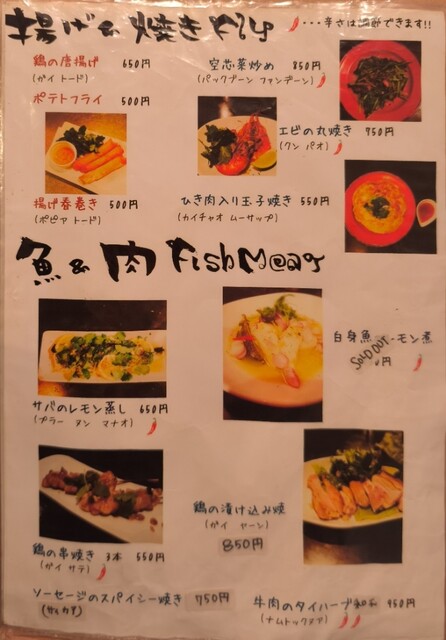 揚げ & 焼き Fry
・・・辛さは調節できます!!
鶏の唐揚げ 650円
(ガイ トード)
ポテトフライ 500円
空芯菜炒め 850円
(パックブーン ファンデーン)
エビの丸焼き 750円
(クン パオ)
揚げ春巻き 500円
(ポピア トード)
ひき肉入り玉子焼き 550円
(カイチャオ ムーサップ)
魚 & 肉 Fish Meat
白身魚 モン煮
SOLD OUT
円
サバのレモン蒸し 650円
(プラー ヌン マナオ)
鶏の漬け込み焼
(ガイ ヤーン)
850円
鶏の串焼き 3本 550円
(ガイ サテ)
ソーセージのスパイシー焼き 750円
牛肉のタイハーブ和え 950円
(ナムトックヌア)